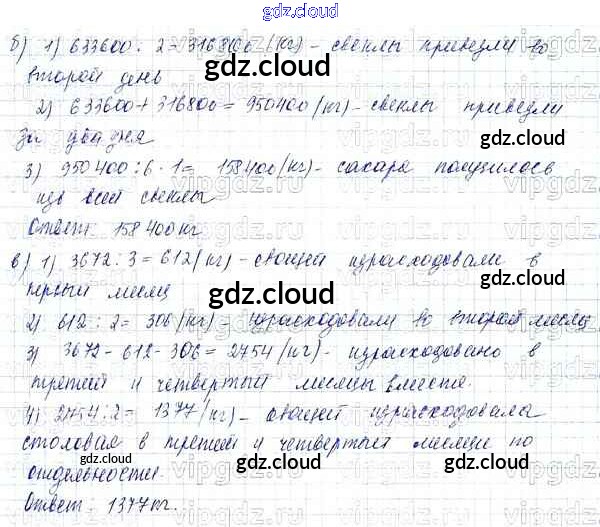 gdz.cloud
б) 1) 633600 : 2 = 316800 (кг) - свеклы привезли во
второй день
gdz.cloud
2) 633600 + 316800 = 950400 (кг) - свеклы привезли
за два дня
gdz.cloud
3) 950400 : 6 · 1 = 158400 (кг) - сахара получилось
gdz.cloud
из всей свеклы
Ответ: 158400 кг
gdz.cloud
в) 1) 3672 : 3 = 612 (кг) - овощей израсходовали в
первый месяц
gdz.cloud
2) 612 : 2 = 306 (кг) - израсходовали во второй месяц
3) 3672 - 612 - 306 = 2754 (кг) - израсходовано в
gdz.cloud
третий и четвертый месяцы вместе.
4) 2754 : 2 = 1377 (кг) - овощей израсходовала
столовая в третий и четвертый месяцы по
gdz.cloud
отдельности.
Ответ: 1377 кг.
gdz.cloud